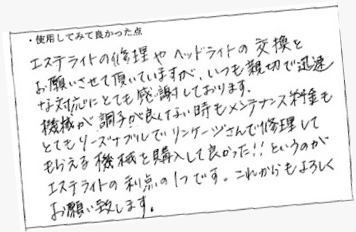 ・使用してみて良かった点
エステライトの修理やヘッドライトの交換と
お願いさせて頂いていますが、いつも親切で迅速
な対応にとても感謝しております。
機械が調子が良くない時もメンテナンス料金も
とてもリーズナブルでリンケージさんで修理して
もらえる機械を購入して良かった!!というのが
エステライトの利点の1つです。これからもよろしく
お願い致します。